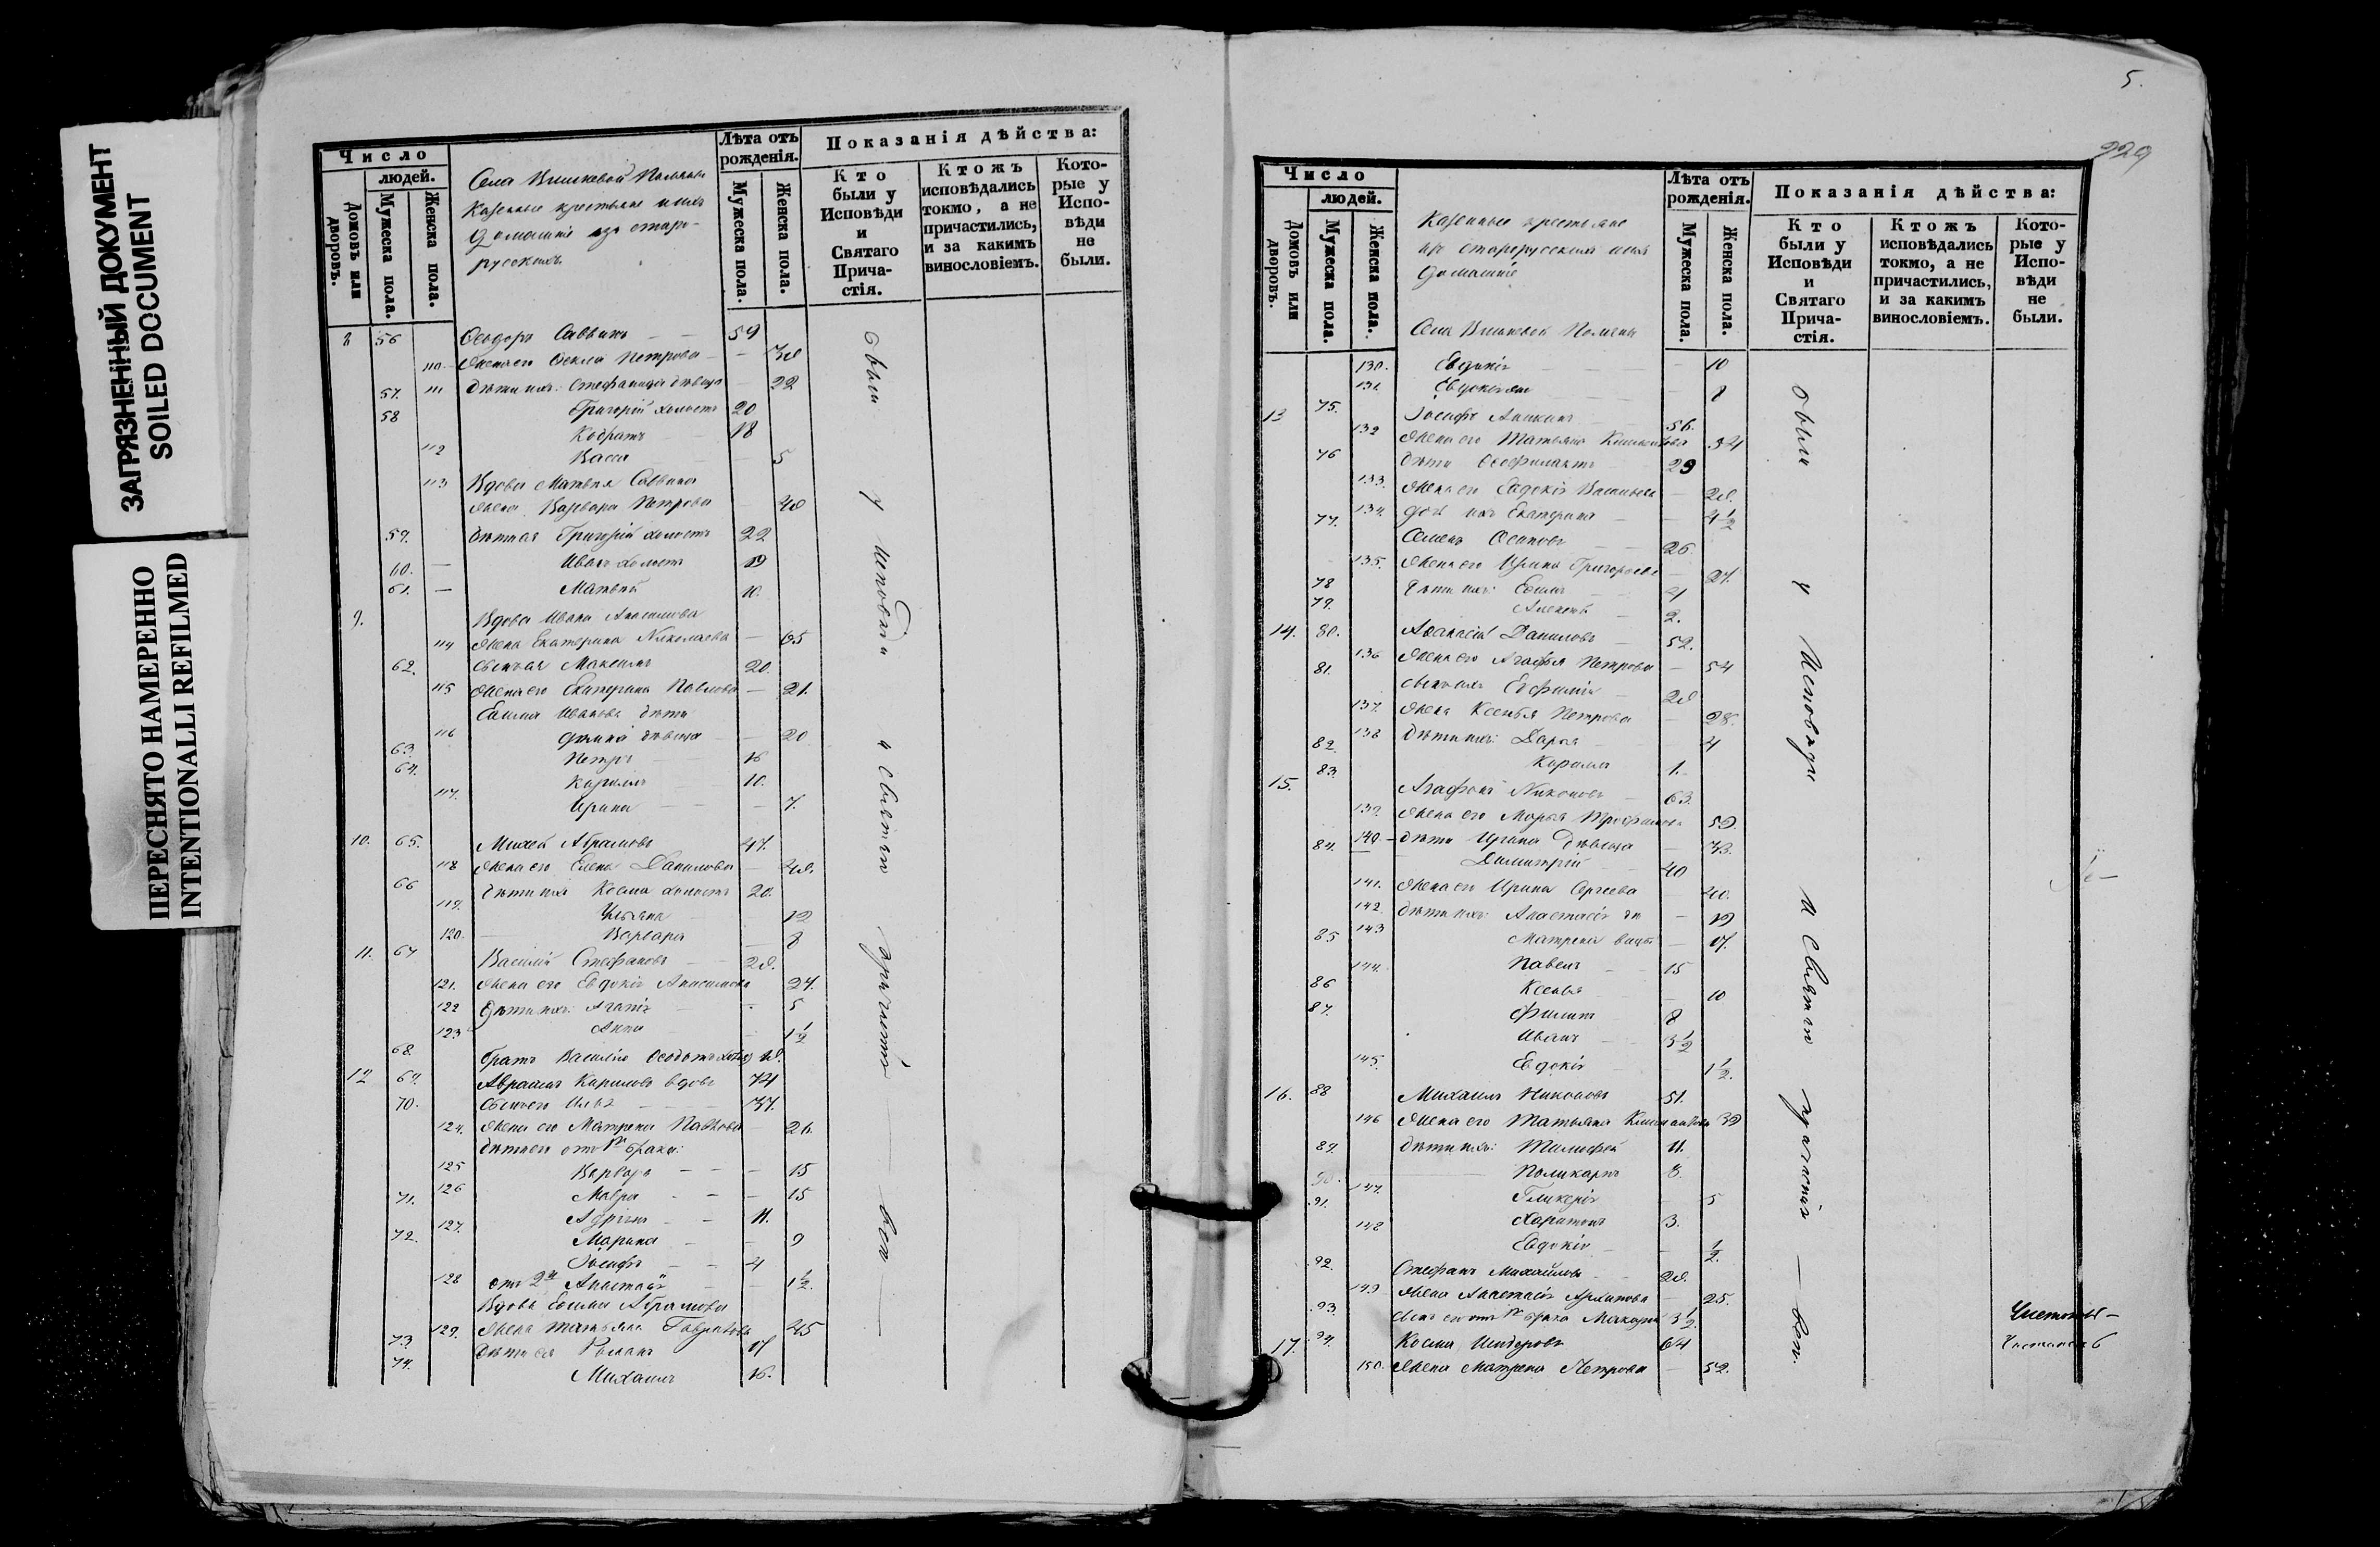 ЗАГРЯЗНЕННЫЙ ДОКУМЕНТ
SOILED DOCUMENT
ПЕРЕСНЯТО НАМЕРЕННО
INTENTIONALLI REFILMED
Число
людей.
Домовъ или дворовъ.
Мужеска пола.
Женска пола.
Села
Казенные крестьяне
домашніе изъ старо-
русскихъ
Лѣта отъ рожденія.
Мужеска пола.
Женска пола.
Показанія дѣйства:
Кто были у Исповѣди и Святаго Прича-стія.
Ктожъ исповѣдались токмо, а не причастились, и за какимъ винословіемъ.
Кото-рые у Испо-вѣди не были.
8 56 Ѳеодоръ Саввинъ 59
110 Жена его Ѳекла Петрова
57. 111 Дѣти ихъ: Стефанида дѣвица 22
58 Григорій холостъ 20
Кодратъ 18
112 Васса 5
113 Вдова Матвея Саввина
жена Варвара Петрова
59. Григорій холостъ 22
60. Иванъ холостъ 19
61. Матвей 10.
9. Вдова Ивана
114 жена Екатерина Николаева 65
62. Максимъ 20.
115 Жена его Екатерина Павлова 21.
Иванова дѣти
116 дѣвица 20
63. Петръ 16
64. Кириллъ 10.
117. Ирина 7.
10. 65. Михей Абрамовъ 47.
118 Жена его Елена Данилова
66 Дѣти ихъ Косма холостъ 20.
119. Ульяна 12
120. Варвара 8
11. 67 Василій Стефановъ
121. Жена его Евдокія 24.
122 Дѣти ихъ: Агапія 5
123 Анна 1½
68. Братъ Василія Ѳеодотъ
12 69. Авраамъ Кириловъ вдовъ 74
70. Сынъ его 37.
124. Жена его Матрена Павлова 26.
Дѣти его отъ 1го брака:
125 Варвара 15
126 Мавра 15
71. Адріанъ 11.
127. Марина 9
72. Іосифъ 4
128 отъ 2й Анастасія 1½
Вдова Абрамова
129. Жена Татьяна 45
73. Дѣти ея Романъ 17
74. Михаилъ 16.
были у исповѣди и Святаго причастія всѣ
5.
229
Число
людей.
Домовъ или дворовъ.
Мужеска пола.
Женска пола.
Казенные крестьяне
изъ старорусскихъ
домашніе
Села
Лѣта отъ рожденія.
Мужеска пола.
Женска пола.
Показанія дѣйства:
Кто были у Исповѣди и Святаго Прича-стія.
Ктожъ исповѣдались токмо, а не причастились, и за какимъ винословіемъ.
Кото-рые у Испо-вѣди не были.
130. Евдокія 10
131. 8
13 75. Іосифъ 56.
132 Жена его Татьяна 54
76 Дѣти Ѳеофилактъ 29
133. Жена его Евдокія Васильева
134. дочь ихъ Екатерина 4½
77. Семенъ Осиповъ 26
135. Жена его Ирина Григорьева 27.
78 Дѣти ихъ: 4
79. Алексѣй 2.
14. 80. Аѳанасій Даниловъ 52.
136 Жена его Агафья Петрова 54
81. Евфимій
137. Жена Ксенья Петрова 28.
138 Дѣти ихъ: Дарья 4
82. Кирилъ 1.
15. 83. Агафонъ Никоновъ 63.
139. Жена его Марья 59.
140. Дѣти Ирина дѣвица
84. Димитрій 40
141. Жена его Ирина Сергеева 40.
142. Дѣти ихъ: Анастасія 19
143 Матрена 17.
85 Павелъ 15
144. Ксенья 10
86 Филиппъ 8
87. Иванъ 3½
145. Евдокія 1½.
16. 88 Михаилъ Никоновъ 51.
146 Жена его Татьяна 39
89. Дѣти ихъ: Тимофей 11.
90. Поликарпъ 8.
147. Гликерія 5
91. Харитонъ 3.
148 Евдокія ½.
92. Стефанъ Михайловъ
149 Жена Анастасія Архипова 25.
93. Сынъ его отъ 1го брака Макарій 3½.
17. 94. Косма 64
150. Жена Матрена Петрова 52.
были у Исповѣди и Святаго причастія всѣ.